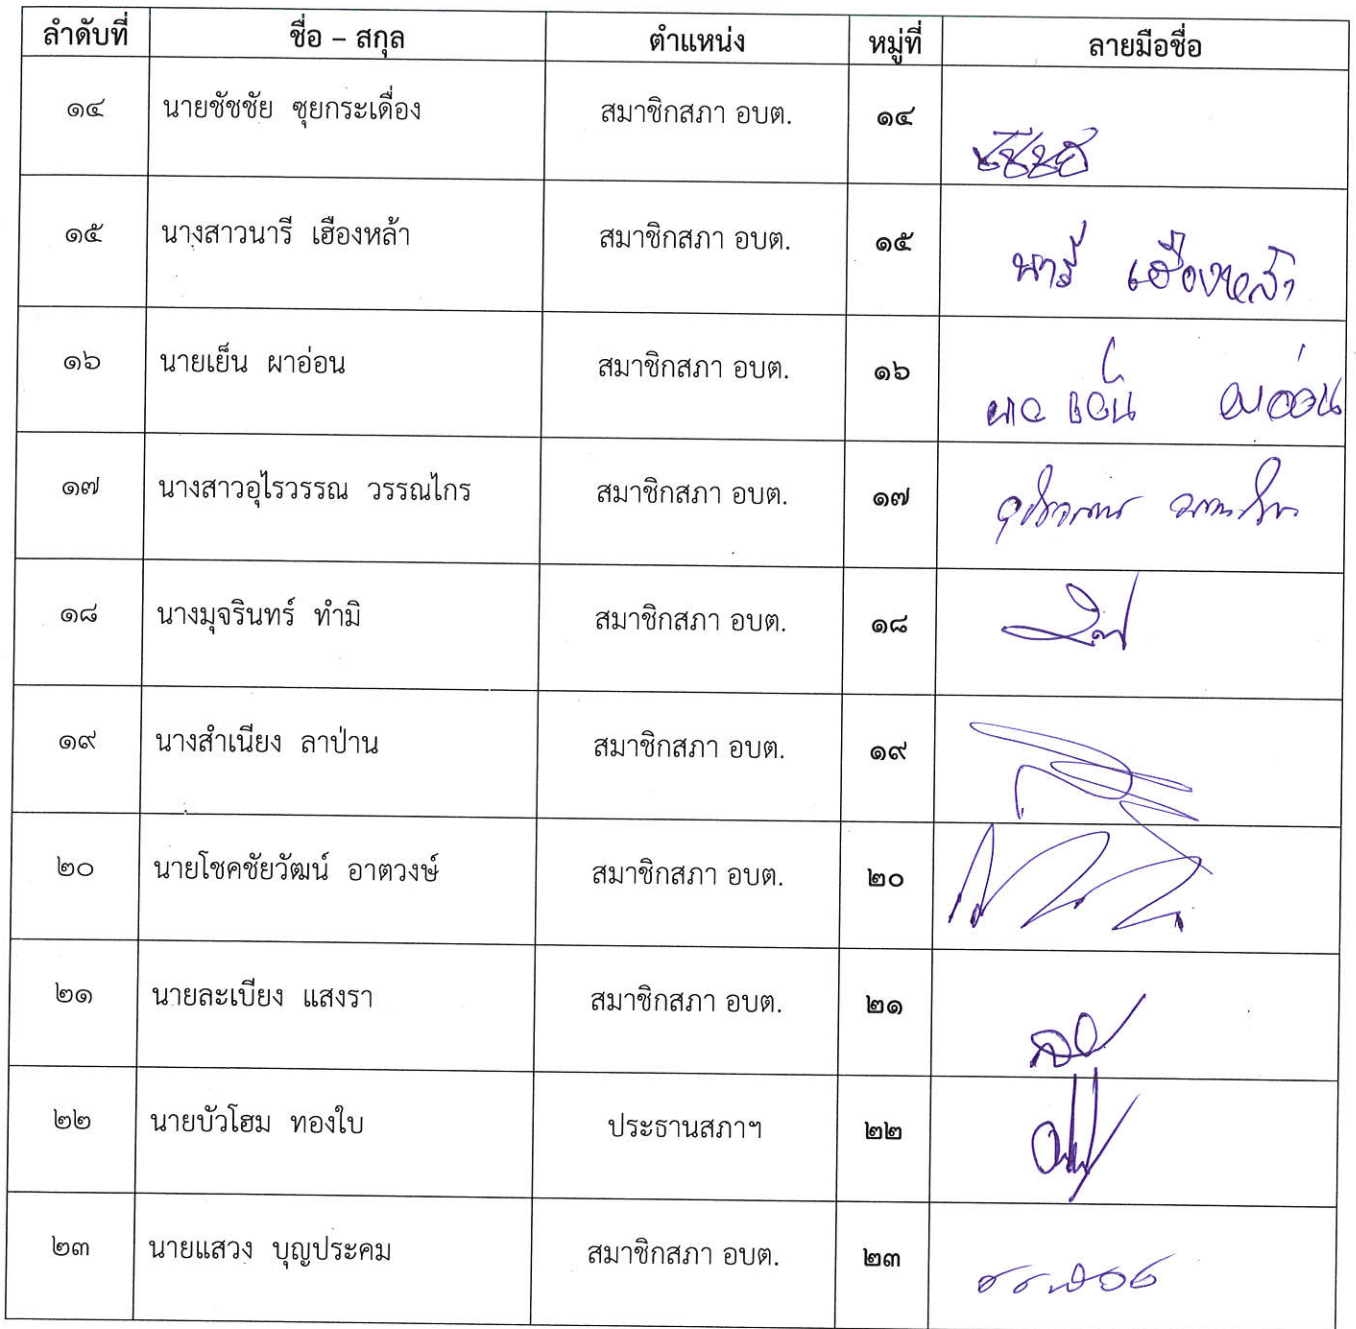 ลำดับที่ ชื่อ – สกุล ตำแหน่ง หมู่ที่ ลายมือชื่อ
๑๔ นายชัชชัย ซุยกระเดื่อง สมาชิกสภา อบต. ๑๔ ชัชชัย
๑๕ นางสาวนารี เฮืองหล้า สมาชิกสภา อบต. ๑๕ นารี เฮืองหล้า
๑๖ นายเย็น ผาอ่อน สมาชิกสภา อบต. ๑๖ นายเย็น ผาอ่อน
๑๗ นางสาวอุไรวรรณ วรรณไกร สมาชิกสภา อบต. ๑๗ อุไรวรรณ วรรณไกร
๑๘ นางมุจรินทร์ ทำมิ สมาชิกสภา อบต. ๑๘
๑๙ นางสำเนียง ลาป่าน สมาชิกสภา อบต. ๑๙
๒๐ นายโชคชัยวัฒน์ อาตวงษ์ สมาชิกสภา อบต. ๒๐
๒๑ นายละเบียง แสงรา สมาชิกสภา อบต. ๒๑
๒๒ นายบัวโฮม ทองใบ ประธานสภาฯ ๒๒
๒๓ นายแสวง บุญประคม สมาชิกสภา อบต. ๒๓